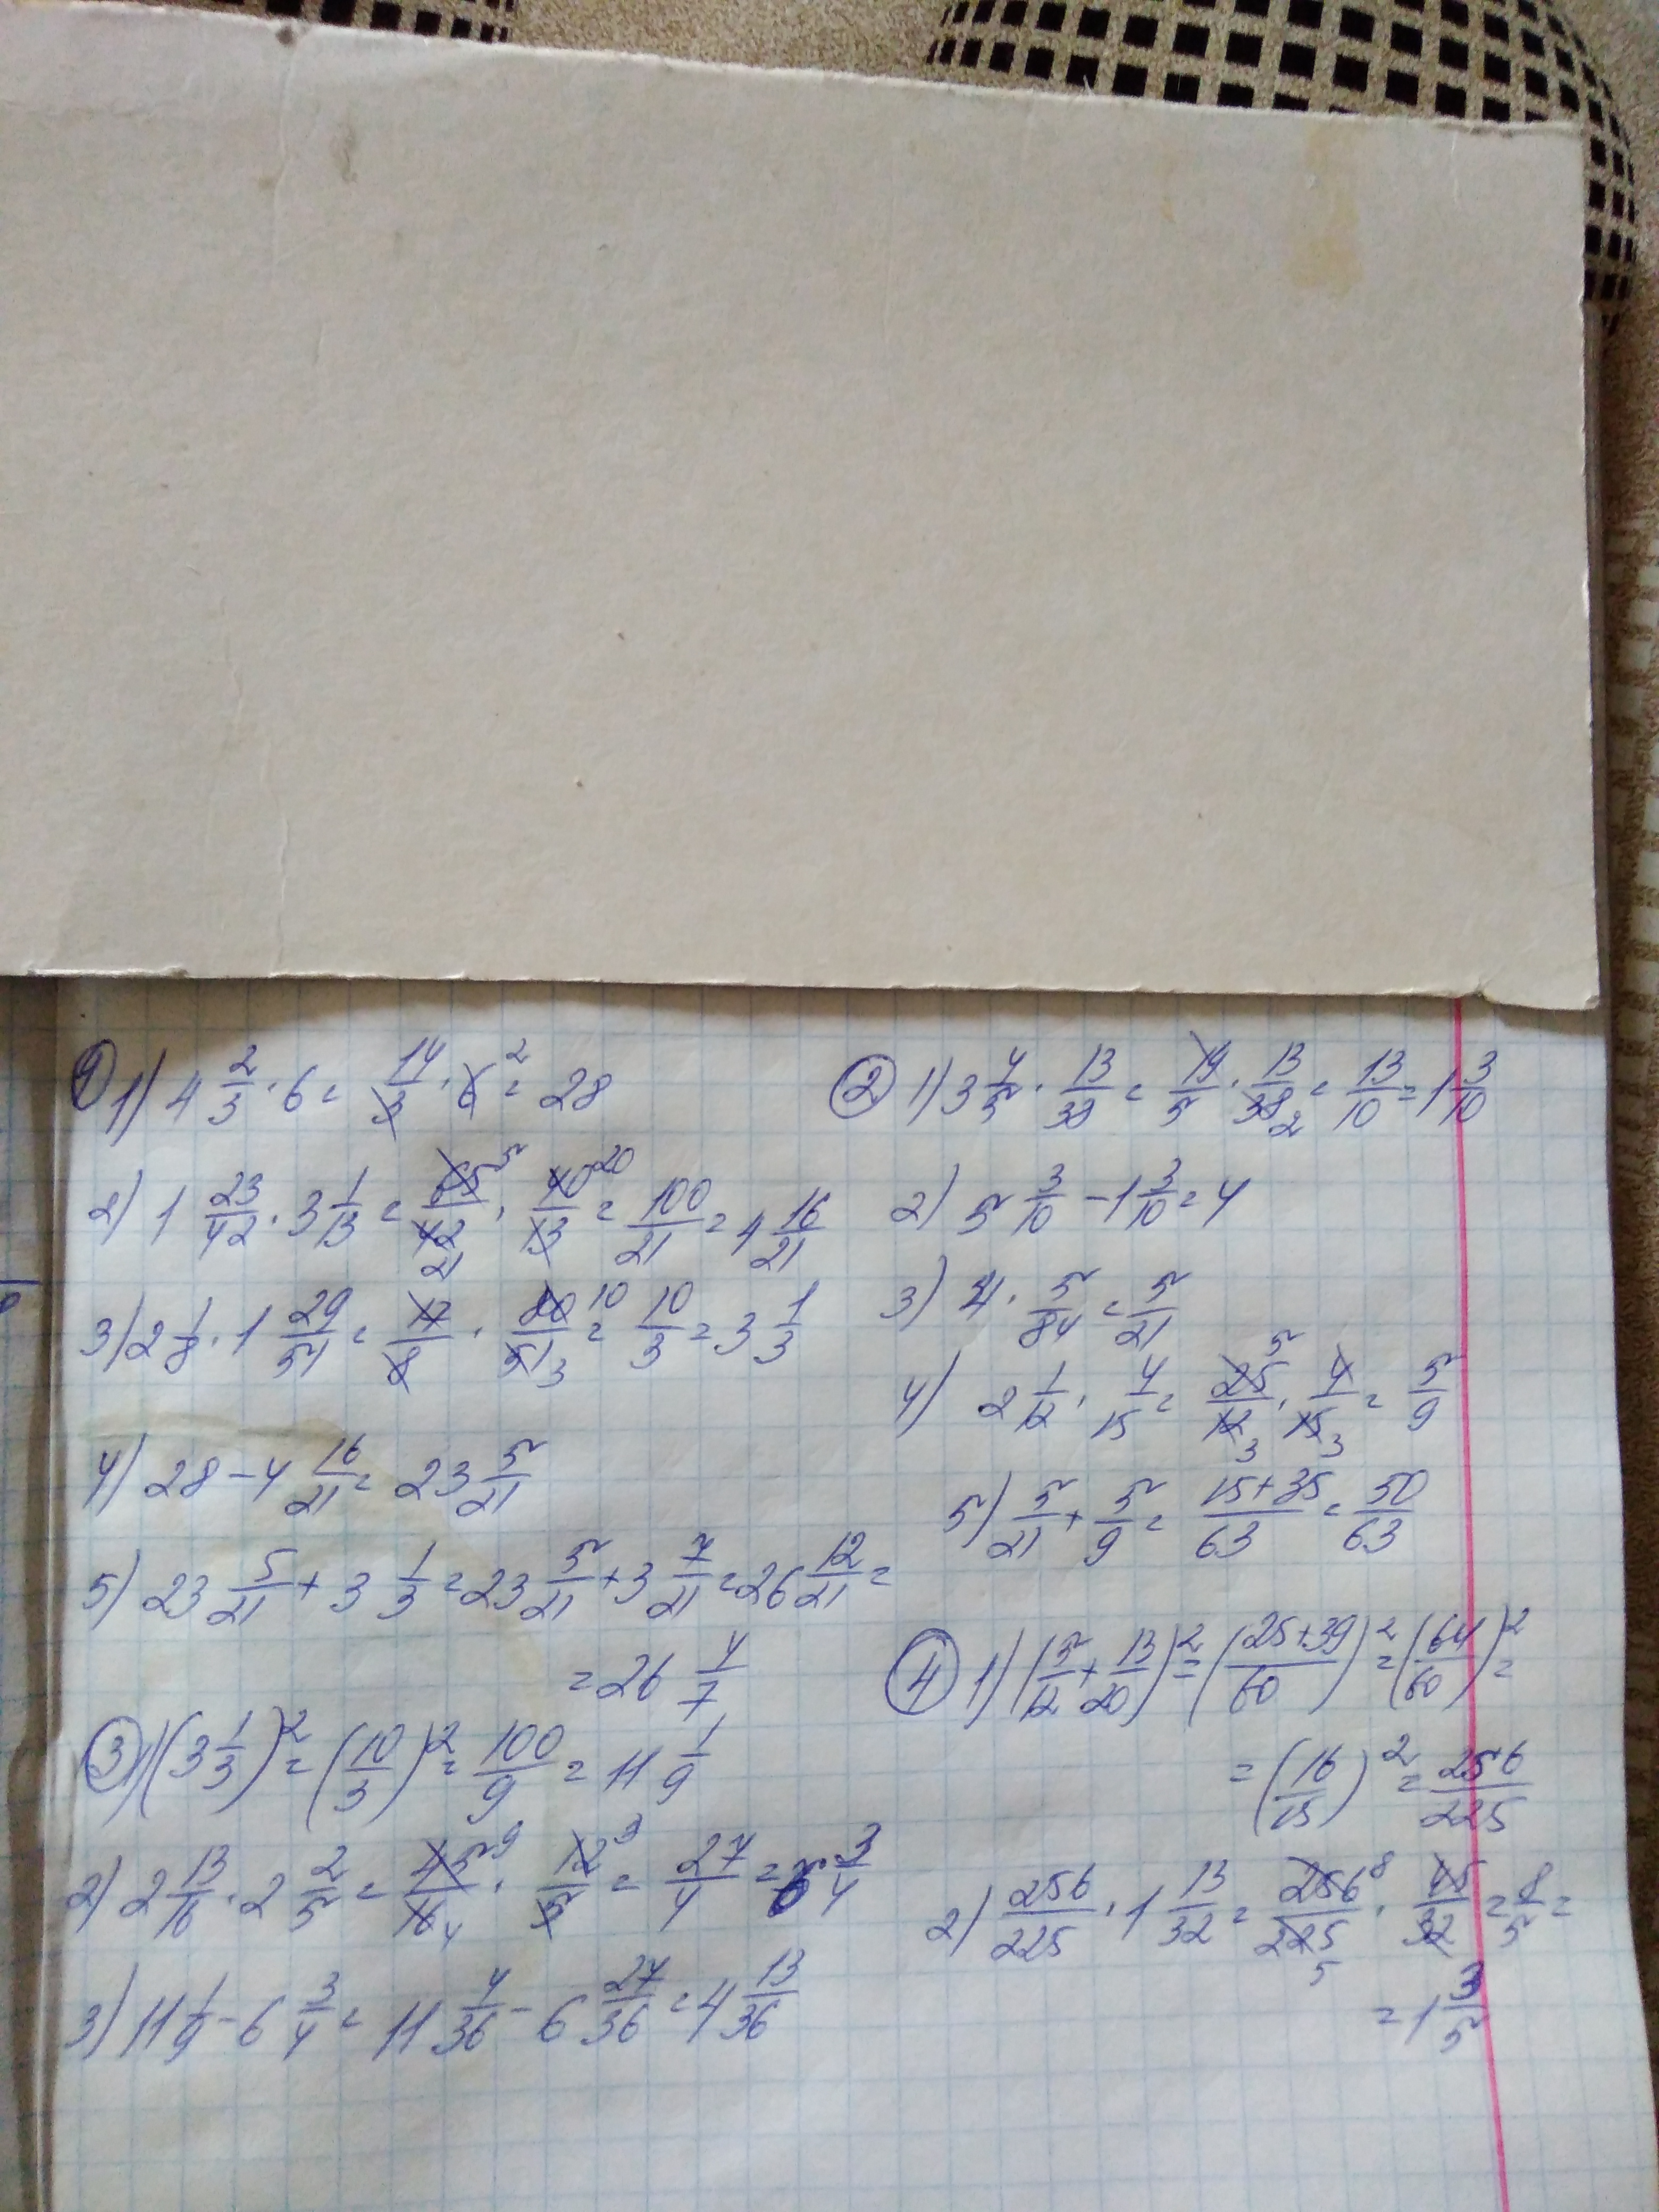 ① 1) 4 2/3 · 6 = 14/3 · 6 ² = 28
2) 1 23/42 · 3 1/13 = 65 ⁵/42 21 · 40 ²⁰/13 = 100/21 = 4 16/21
3) 2 1/8 · 1 29/51 = 17/8 · 80 ¹⁰/51 3 = 10/3 = 3 1/3
4) 28 - 4 16/21 = 23 5/21
5) 23 5/21 + 3 1/3 = 23 5/21 + 3 7/21 = 26 12/21 =
= 26 4/7
③ 1) (3 1/3)² = (10/3)² = 100/9 = 11 1/9
2) 2 13/16 · 2 2/5 = 45 ⁹/16 4 · 12 ³/5 = 27/4 = 6 3/4
3) 11 1/9 - 6 3/4 = 11 4/36 - 6 27/36 = 4 13/36
② 1) 3 4/5 · 13/38 = 19/5 · 13/38 2 = 13/10 = 1 3/10
2) 5 3/10 - 1 3/10 = 4
3) 4 · 5/84 = 5/21
4) 2 1/12 · 4/15 = 25 ⁵/12 3 · 4/15 3 = 5/9
5) 5/21 + 5/9 = 15+35/63 = 50/63
④ 1) (5/12 + 13/20)² = (25+39/60)² = (64/60)² =
= (16/15)² = 256/225
2) 256/225 · 1 13/32 = 256 ⁸/225 5 · 45/32 = 8/5 =
= 1 3/5